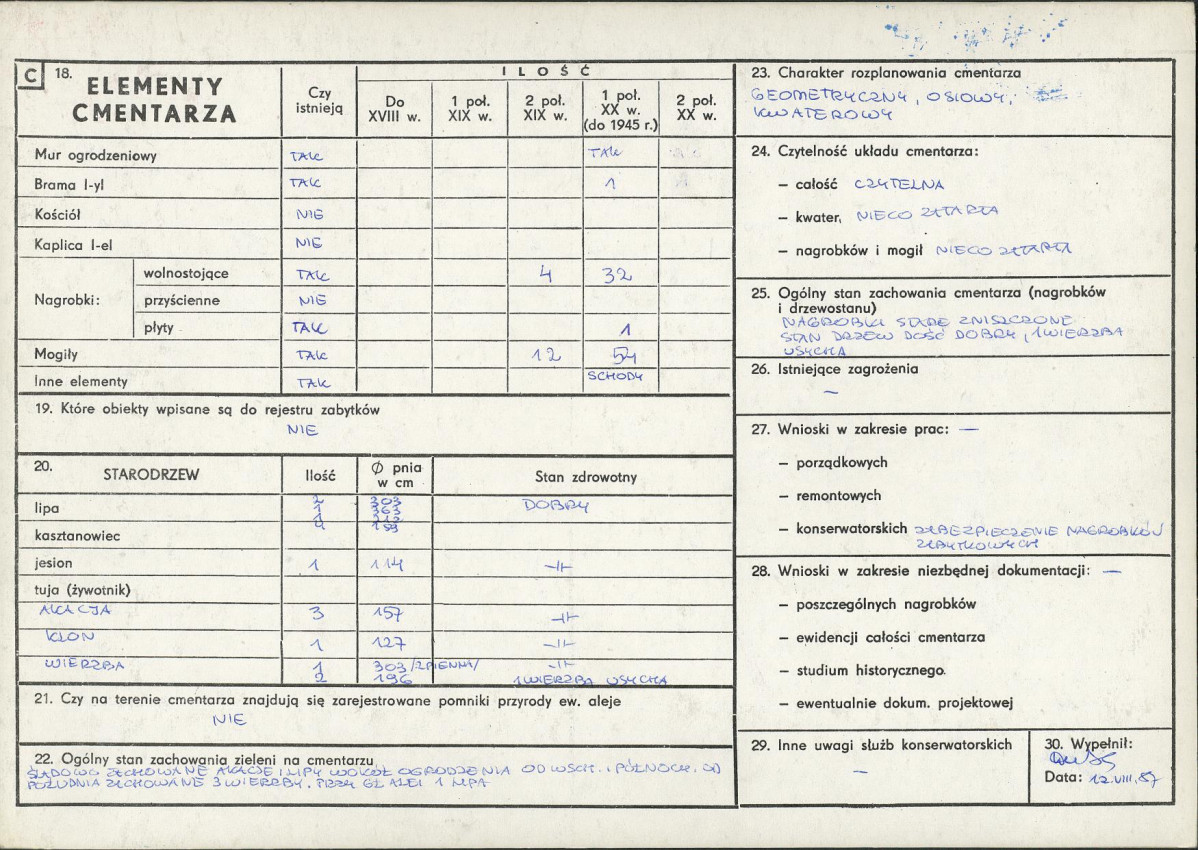 C 18. ELEMENTY CMENTARZA
Czy istnieją
ILOŚĆ
Do XVIII w.
1 poł. XIX w.
2 poł. XIX w.
1 poł. XX w. (do 1945 r.)
2 poł. XX w.
Mur ogrodzeniowy TAK TAK
Brama I-yl TAK 1
Kościół NIE
Kaplica I-el NIE
Nagrobki:
wolnostojące TAK 4 32
przyścienne NIE
płyty TAK 1
Mogiły TAK 12 54
Inne elementy TAK SCHODY
19. Które obiekty wpisane są do rejestru zabytków
NIE
20. STARODRZEW Ilość Ø pnia w cm Stan zdrowotny
lipa 2 303 DOBRY
1 363
1 212
4 159
kasztanowiec
jesion 1 114 -ıı-
tuja (żywotnik)
AKACJA 3 157 -ıı-
KLON 1 127 -ıı-
WIERZBA 1 303 /2PIENNA/ -ıı-
2 196 1 WIERZBA USYCHA
21. Czy na terenie cmentarza znajdują się zarejestrowane pomniki przyrody ew. aleje
NIE
22. Ogólny stan zachowania zieleni na cmentarzu
ŚLADOWO ZACHOWANE AKACJE I LIPY WOKÓŁ OGRODZENIA OD WSCH. I PÓŁNOCY. OD
POŁUDNIA ZACHOWANE 3 WIERZBY. PRZY GŁ ALEI 1 LIPA
23. Charakter rozplanowania cmentarza
GEOMETRYCZNY, OSIOWY,
KWATEROWY
24. Czytelność układu cmentarza:
– całość CZYTELNA
– kwater, NIECO ZATARTA
– nagrobków i mogił NIECO ZATARTA
25. Ogólny stan zachowania cmentarza (nagrobków
i drzewostanu)
NAGROBKI STARE ZNISZCZONE
STAN DRZEW DOŚĆ DOBRY, 1 WIERZBA
USYCHA
26. Istniejące zagrożenia
–
27. Wnioski w zakresie prac: —
– porządkowych
– remontowych
– konserwatorskich ZABEZPIECZENIE NAGROBKÓW
ZABYTKOWYCH
28. Wnioski w zakresie niezbędnej dokumentacji: —
– poszczególnych nagrobków
– ewidencji całości cmentarza
– studium historycznego.
– ewentualnie dokum. projektowej
29. Inne uwagi służb konserwatorskich
–
30. Wypełnił:
Data: 12.VIII.87